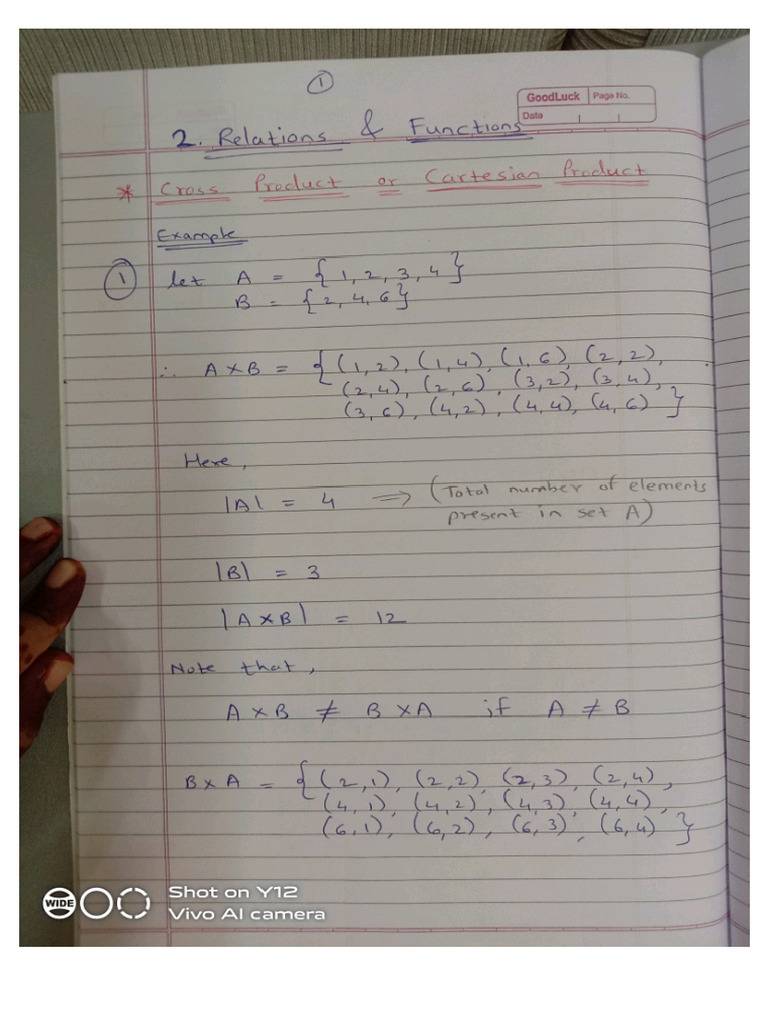 1
GoodLuck Page No.
Date
2. Relations & Functions
* Cross Product or Cartesian Product
Example
1 let A = {1, 2, 3, 4}
B = {2, 4, 6}
∴ A×B = {(1,2), (1,4), (1,6), (2,2),
(2,4), (2,6), (3,2), (3,4),
(3,6), (4,2), (4,4), (4,6)}
Here,
|A| = 4 ⇒ (Total number of elements
present in set A)
|B| = 3
|A×B| = 12
Note that,
A×B ≠ B×A if A ≠ B
B×A = {(2,1), (2,2), (2,3), (2,4),
(4,1), (4,2), (4,3), (4,4),
(6,1), (6,2), (6,3), (6,4)}
WIDE Shot on Y12
Vivo AI camera